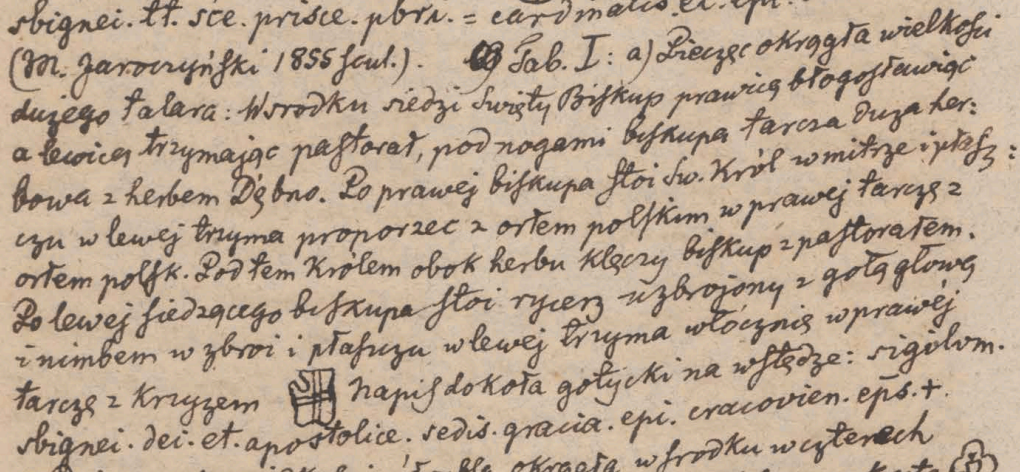 sbignei. tt. sce. prisce. pbri. = cardinalis. et. epi.
(M. Jaroczyński 1855 scul.). Tab. I: a) Pieczęc okrągła wielkości
dużego talara: Wsrodku siedzi święty Biskup prawicą błogosławiąc
a lewicą trzymając pastorał, pod nogami biskupa tarcza duza her:
bowa z herbem Dębno. Po prawej biskupa stoi św. Król w mitrze i płasz:
czu w lewej trzyma proporzec z orłem polskim w prawej tarczę z
orłem polsk. Pod tem Królem obok herbu klęczy biskup z pastorałem.
Po lewej siedzącego biskupa stoi rycerz uzbrojony z gołą głową
i nimbem w zbroi i płaszczu w lewej trzyma włócznię w prawéj
tarczę z krzyzem napis dokoła gotycki na wstędze: sigolom.
sbignei. dei. et. apostolice. sedis. gracia. epi. cracovien. eps. +
okrągła w srodku w czterech